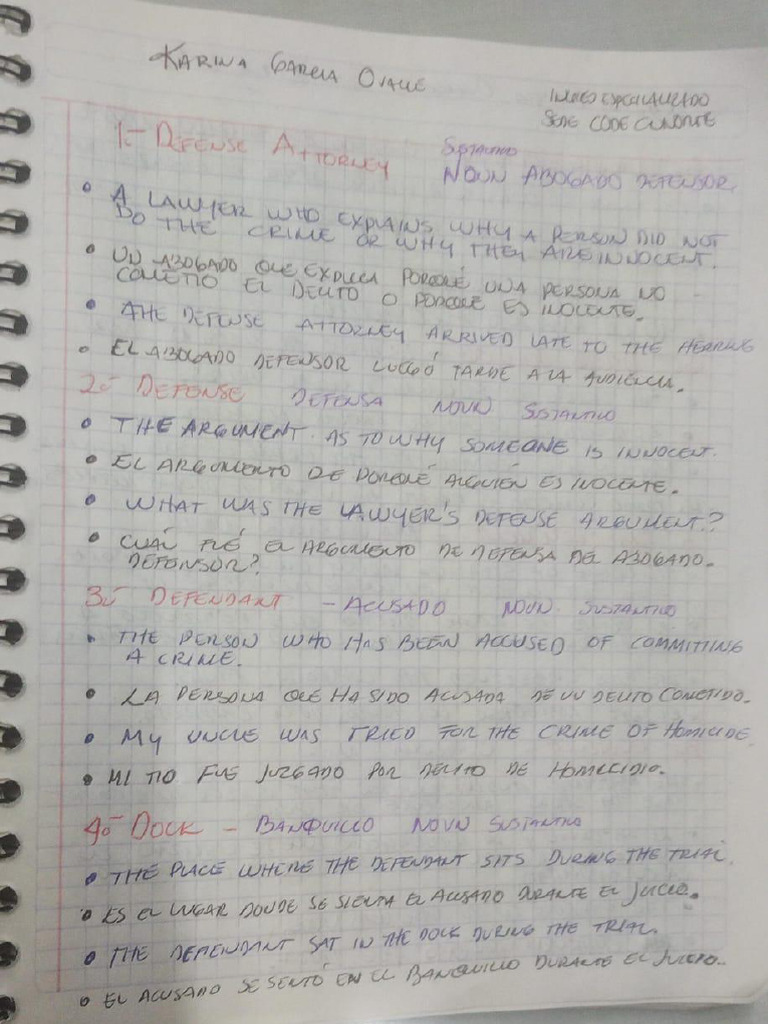 KARINA GARCIA OVALLE
INGLES ESPECIALIZADO
SEDE CODE
1.- DEFENSE ATTORNEY
SUSTANTIVO
NOUN ABOGADO DEFENSOR.
• A LAWYER WHO EXPLAINS WHY A PERSON DID NOT
DO THE CRIME OR WHY THEY ARE INNOCENT.
• UN ABOGADO QUE EXPLICA PORQUÉ UNA PERSONA NO
COMETIO EL DELITO O PORQUE ES INOCENTE.
• THE DEFENSE ATTORNEY ARRIVED LATE TO THE HEARING
• EL ABOGADO DEFENSOR LLEGÓ TARDE A LA AUDIENCIA.
2.- DEFENSE DEFENSA NOUN SUSTANTIVO
• THE ARGUMENT AS TO WHY SOMEONE IS INNOCENT.
• EL ARGUMENTO DE PORQUÉ ALGUIÉN ES INOCENTE.
• WHAT WAS THE LAWYER'S DEFENSE ARGUMENT?
• CUÁL FUÉ EL ARGUMENTO DE DEFENSA DEL ABOGADO.
DEFENSOR?
3.- DEFENDANT - ACUSADO NOUN SUSTANTIVO
• THE PERSON WHO HAS BEEN ACCUSED OF COMMITTING
A CRIME.
• LA PERSONA QUE HA SIDO ACUSADA DE UN DELITO COMETIDO.
• MY UNCLE WAS TRIED FOR THE CRIME OF HOMICIDE.
• MI TIO FUE JUZGADO POR DELITO DE HOMICIDIO.
4.- DOCK - BANQUILLO NOUN SUSTANTIVO
• THE PLACE WHERE THE DEFENDANT SITS DURING THE TRIAL.
• ES EL LUGAR DONDE SE SIENTA EL ACUSADO DURANTE EL JUICIO.
• THE DEFENDANT SAT IN THE DOCK DURING THE TRIAL.
• EL ACUSADO SE SENTÓ EN EL BANQUILLO DURANTE EL JUICIO.